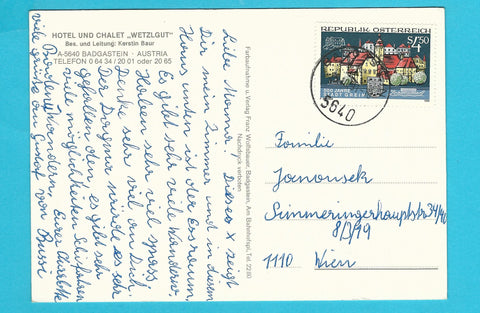 HOTEL UND CHALET „WETZLGUT"
Bes. und Leitung: Kerstin Baur
A-5640 BADGASTEIN - AUSTRIA
TELEFON 0 64 34 / 20 01 oder 20 65
Liebe Mama! Dieses X zeigt
Dir mein Zimmer und in diesem
Haus unten ist der Essraum,
Es gibt sehr viele Wanderer.
Haben sehr viel Spass
Denke sehr viel an Dich.
Der würde es sehr
gefallen den es gibt sehr
viele Möglichkeiten
Wandern. Eure Charlotte
viele grüsse an Gustav von Bussi
Farbaufnahme u. Verlag Franz Wolfsbauer, Badgastein, Am Bahnhofspl. Tel. 2280
Nachdruck verboten
REPUBLIK ÖSTERREICH
S 4,50
500 JAHRE
STADT GREIN
5640
Familie
Janousek
Simmeringerhauptstr 34/40
8/3/19
1110 Wien